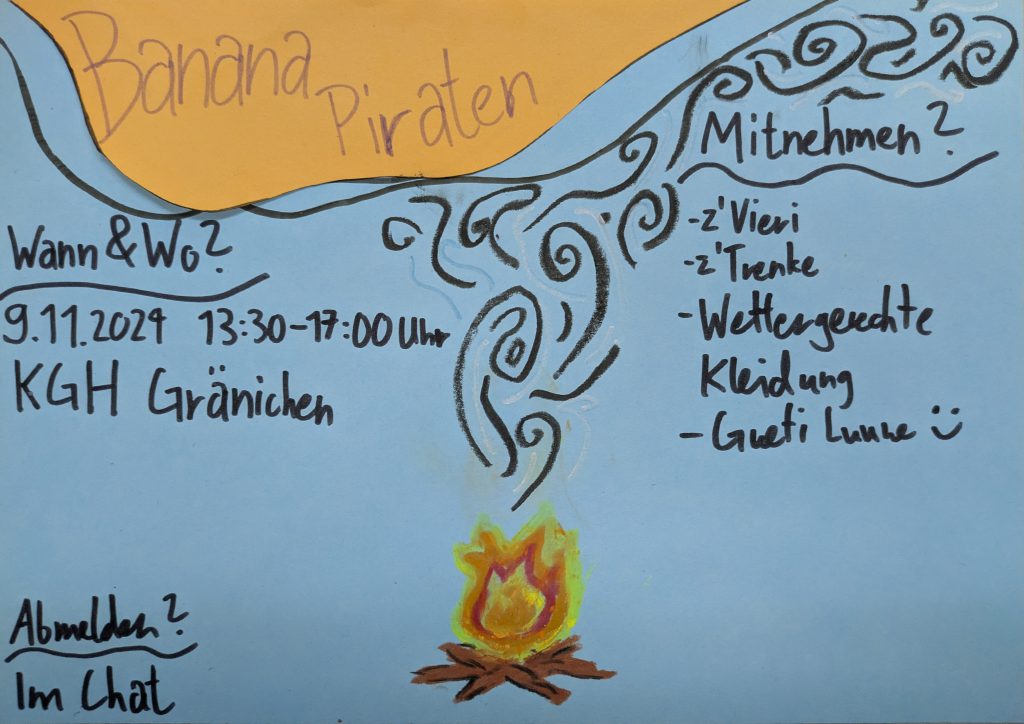 Banana
Piraten
Wann & Wo?
9.11.2024 13:30-17:00 Uhr
KGH Gränichen
Mitnehmen?
-z'Vieri
-z'Trenke
-Wettergerechte
Kleidung
-Gueti Luune :)
Abmelden?
Im Chat